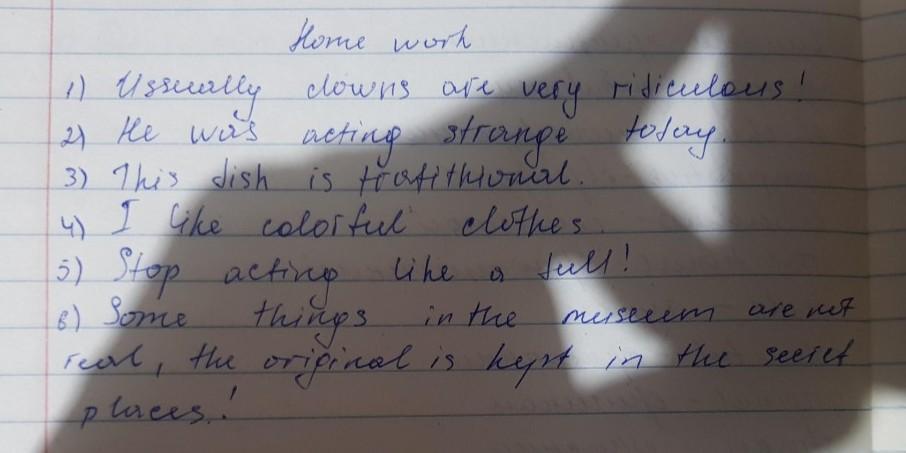 Home work
1) Ussually clowns are very ridiculous!
2) He was acting strange today.
3) This dish is tradithional.
4) I like colorful clothes.
5) Stop acting like a full!
6) Some things in the museum are not
real, the original is kept in the secret
places!